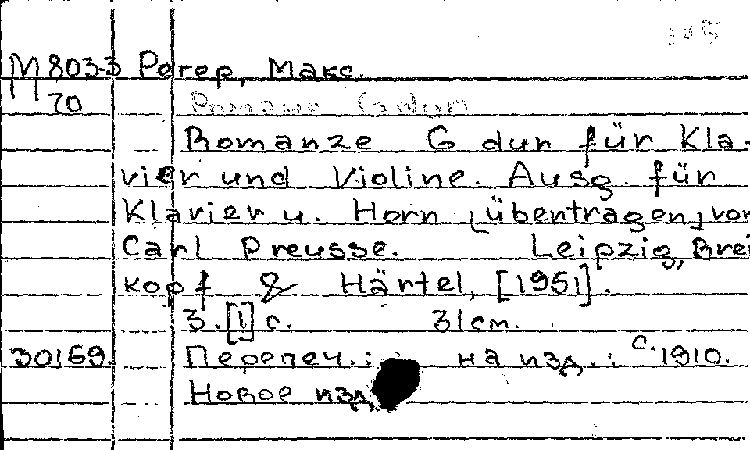 М 8033 Регер, Макс.
70 Romanze G dur
Romanze G dur für Kla-
vier und Violine. Ausg. für
Klavier u. Horn [übertragen] von
Carl Preusse. Leipzig, Brei
kopf & Härtel, [1951].
3.[1] с. 31 см.
30159. Перепеч.: на изд.: с. 1910.
Новое изд